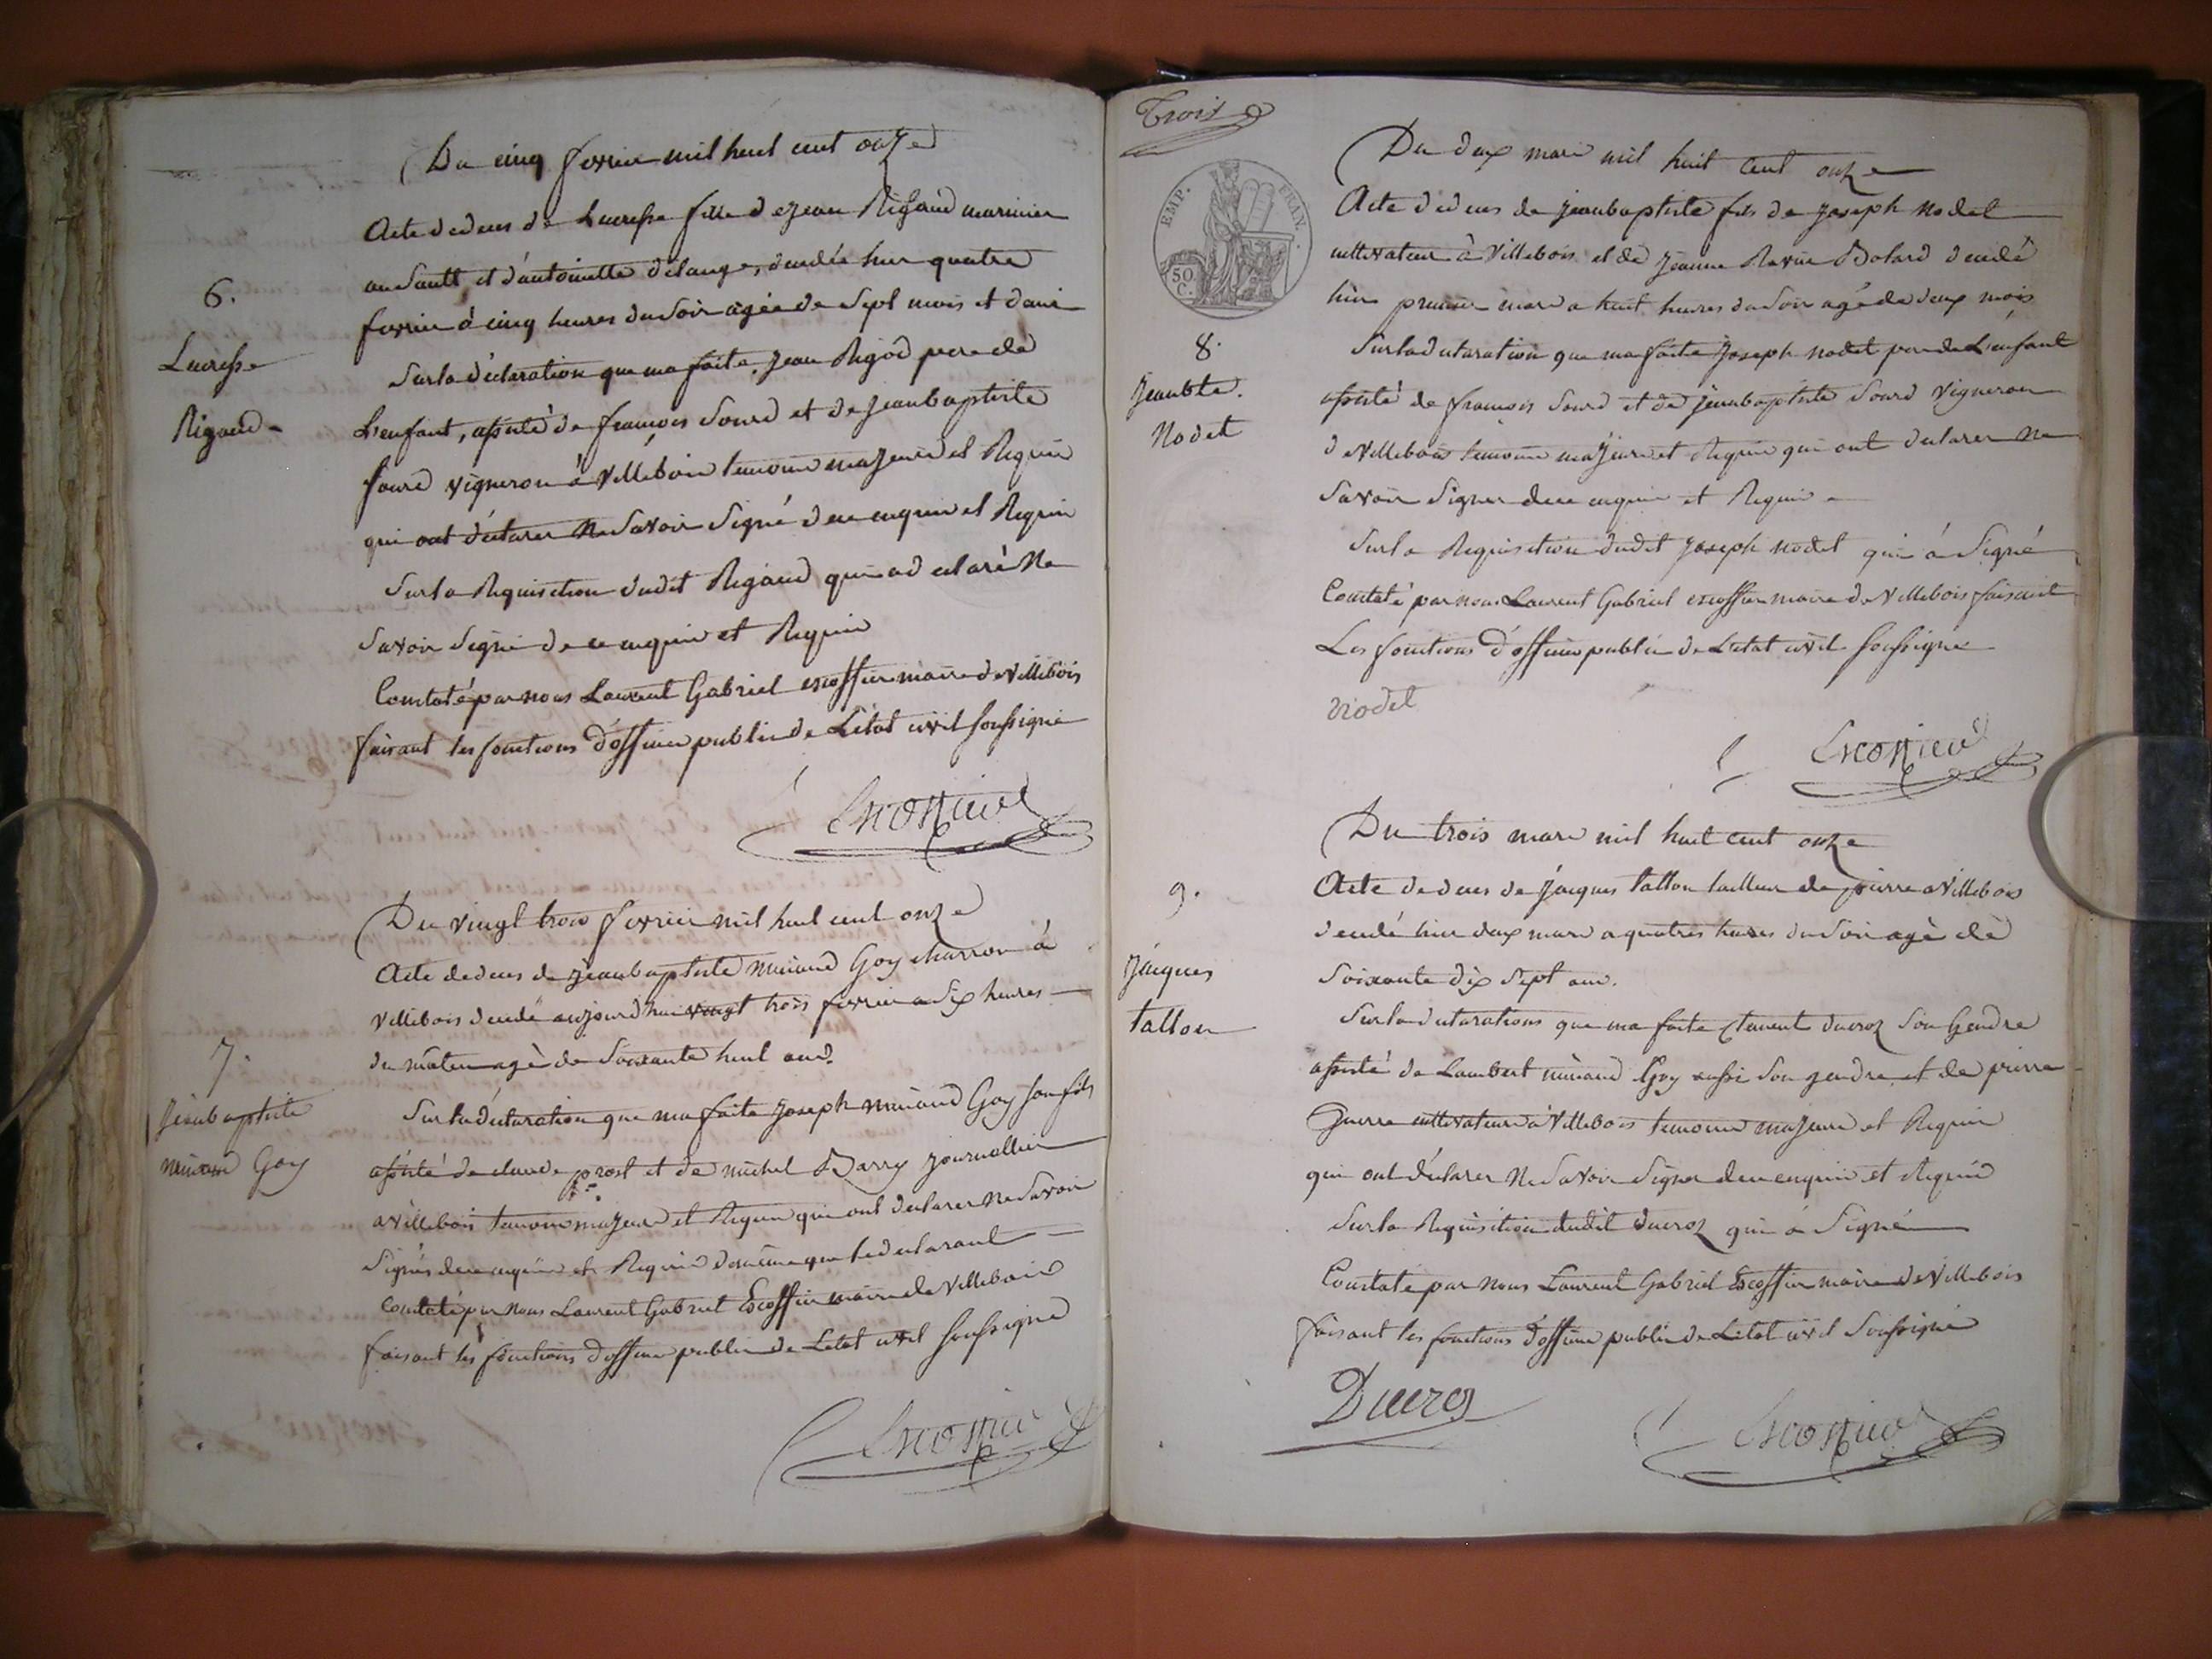 Du cinq fevrier mil huit cent onze
6.
Lucresse
Rigaud
Acte de deces de Lucresse fille de jean Rigaud marinier
au Sault et d'antoinette délange, decedée hier quatre
fevrier à cinq heures du Soir agée de Sept mois et demi
Sur la déclaration que ma faite Jean Rigod pere de
L'enfant, assisté de francois Sourd et de jeanbaptiste
Sourd vigneron à Villebois temoins majeurs et Requis
qui ont déclarer Ne Savoir Signé de ce enquis et Requis
Sur la Requisition dudit Rigaud qui a declaré Ne
Savoir Signé de ce enquis et Requis
Constaté par nous Laurent Gabriel escoffier maire de Villebois
faisant les fonctions d'officier public de L'état civil Soussigné
Escoffier
Du vingt trois fevrier mil huit cent onze
7.
jeanbaptiste
Goy
Acte de deces de jeanbaptiste Goy charron à
Villebois decedé aujourdhui vingt trois fevrier a Six heures
du matin agè de Soixante huit ans
Sur la declaration que ma faite Joseph Goy Son fils
assisté de claude prost et de michel Barry journallier
a Villebois temoins majeurs et Requis qui ont declarer Ne Savoir
Signés de ce enquis et Requis de même que le declarant
Constaté par Nous Laurent Gabriel Escoffier maire de Villebois
faisant les fonctions d'officier public de Letat civil Soussigné
Escoffier
Trois
EMP. FRAN.
50 C.
Du deux mars mil huit cent onze
8.
Jeanbte.
Nodet
Acte de deces de jeanbaptiste fils de Joseph Nodet
cultivateur à Villebois et de jeanne Bolard decedé
hier premier mars a huit heures du Soir agé de deux mois
Sur la declaration que ma faite Joseph Nodet pere de L'enfant
assisté de francois Sourd et de jeanbaptiste Sourd Vigneron
de Villebois temoins majeurs et Requis qui ont declarer Ne
Savoir Signer de ce enquis et Requis
Sur la Requisition dudit Joseph Nodet qui à Signé
Constaté par nous Laurent Gabriel escoffier maire de Villebois faisant
Les fonctions d'officier public de L'etat civil Soussigné
Nodet
Escoffier
Du trois mars mil huit cent onze
9.
Jacques
tallon
Acte de deces de Jacques tallon tailleur de pierre a Villebois
decedé hier deux mars a quatres heures du Soir agè de
Soixante dix Sept ans.
Sur la declarations que ma faite Clement ducroz Son Gendre
assisté de Lambert Goy aussi Son gendre et de pierre
Guerre cultivateurs à Villebois temoins majeurs et Requis
qui ont déclarer Ne Savoir Signer de ce enquis et Requis
Sur la Requisition dudit ducroz qui à Signé
Constaté par Nous Laurent Gabriel Escoffier maire de Villebois
faisant les fonctions d'officier public de L'etat civil Soussigné
Ducroz
Escoffier